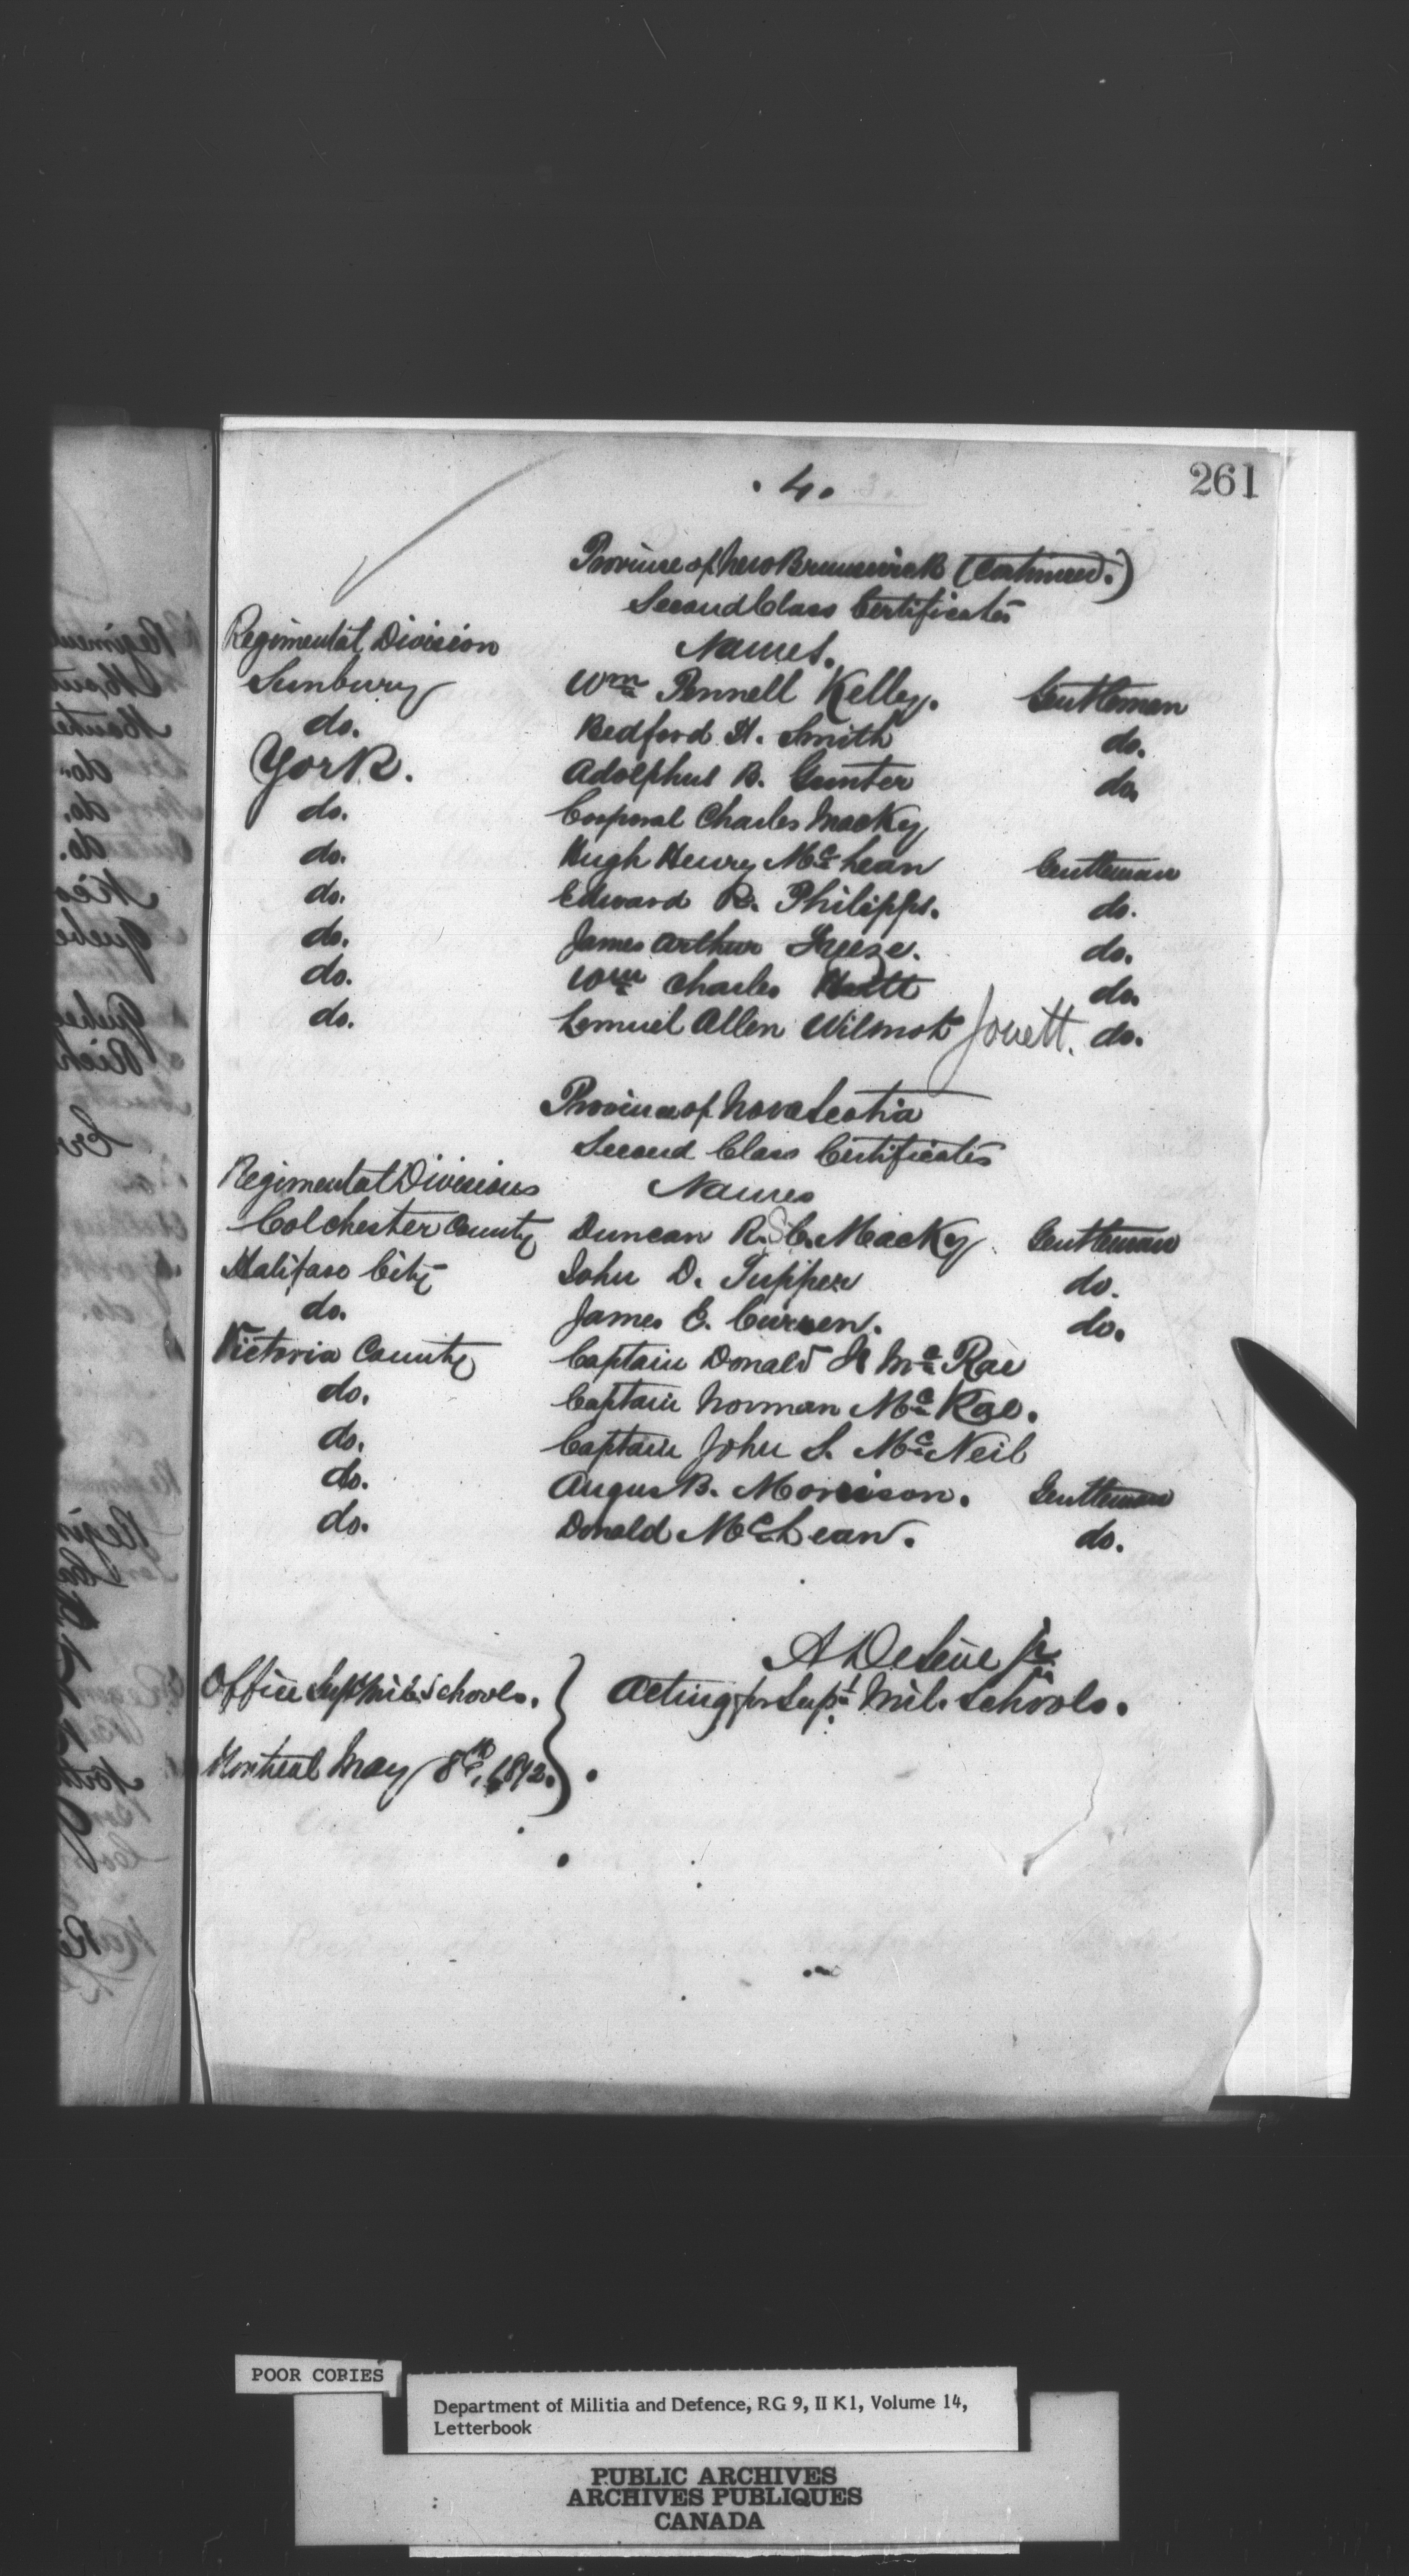 261
. 4 .
Province of New Brunswick (Continued.)
Second Class Certificates
Regimental Division Names.
Sunbury Wm Pennell Kelley. Gentleman
do. Bedford H. Smith do.
York. Adolphus B. Gunter do.
do. Corporal Charles Macky
do. Hugh Henry McLean Gentleman
do. Edward R. Philipps. do.
do. James Arthur Freeze. do.
do. Wm Charles do.
do. Lemuel Allen Wilmot Jouett. do.
Province of Nova Scotia
Second Class Certificates
Regimental Divisions Names
Colchester County Duncan R. S. C. Macky Gentleman
Halifax City John D. Tupper do.
do. James E. Curren. do.
Victoria County Captain Donald McRae
do. Captain Norman McRae.
do. Captain John S. McNeil
do. Angus B. Morrison. Gentleman
do. Donald McLean. do.
A DeLeue Jr.
Office Supt Mil. Schools. Acting for Supt Mil. Schools.
Montreal May 8th, 1872.
POOR COPIES
Department of Militia and Defence, RG 9, II K1, Volume 14,
Letterbook
PUBLIC ARCHIVES
ARCHIVES PUBLIQUES
CANADA